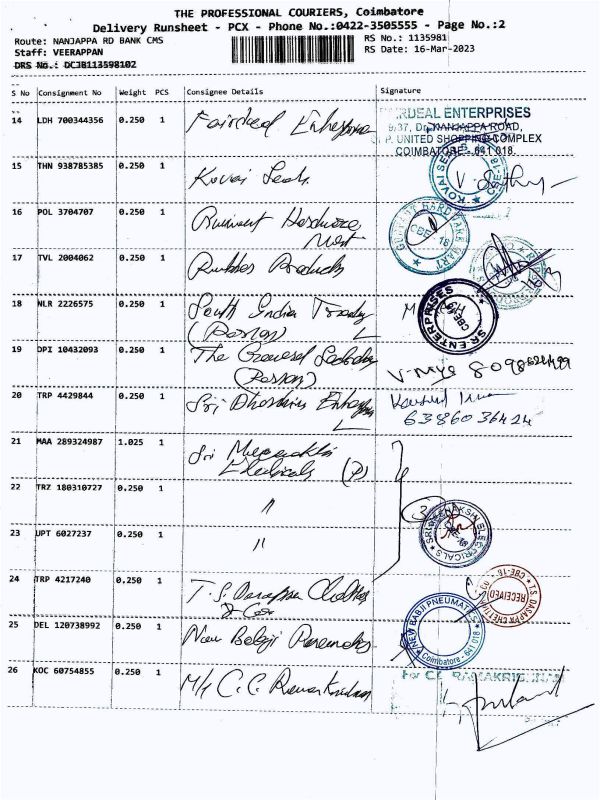 THE PROFESSIONAL COURIERS, Coimbatore
Delivery Runsheet - PCX - Phone No.:0422-3505555 - Page No.:2
Route: NANJAPPA RD BANK CMS
RS No.: 1135981
Staff: VEERAPPAN
RS Date: 16-Mar-2023
DRS No.: DCJB113598102
S No Consignment No Weight PCS Consignee Details Signature
14 LDH 700344356 0.250 1 Fairdeal Enterprise
RDEAL ENTERPRISES
9/37, Dr. NANJAPPA ROAD,
P. UNITED SHOPPING COMPLEX
COIMBATORE - 641 018.
15 THN 938785385 0.250 1 Kovai Seals
KOVAI SEALS CBE-18
16 POL 3704707 0.250 1 Hardware
Mart
HARDWARE MART CBE 18
17 TVL 2004062 0.250 1 Rubber Products
18 NLR 2226575 0.250 1 South India Trading
(Person)
SR ENTERPRISES CBE-18
19 DPI 10432093 0.250 1 The General
(Person)
20 TRP 4429844 0.250 1 Sri
6386036424
21 MAA 289324987 1.025 1 Sri Meenakshi
Electricals (P)
22 TRZ 180310727 0.250 1 "
3
23 UPT 6027237 0.250 1 "
SRI MEENAKSHI ELECTRICALS
24 TRP 4217240 0.250 1 T.S.
T.S. DASAPPA CHETTIAR RECEIVED CBE-18
25 DEL 120738992 0.250 1 New
NEW BABJI PNEUMATICS Coimbatore - 641 018
26 KOC 60754855 0.250 1 M/s C.C. Ramakrishnan
For C.C. RAMAKRISHNAN